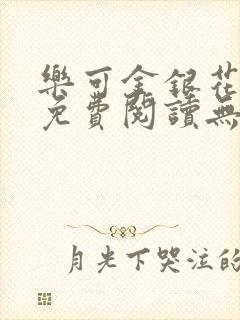 樂可金銀花
免費閱讀無
月光下哭泣的